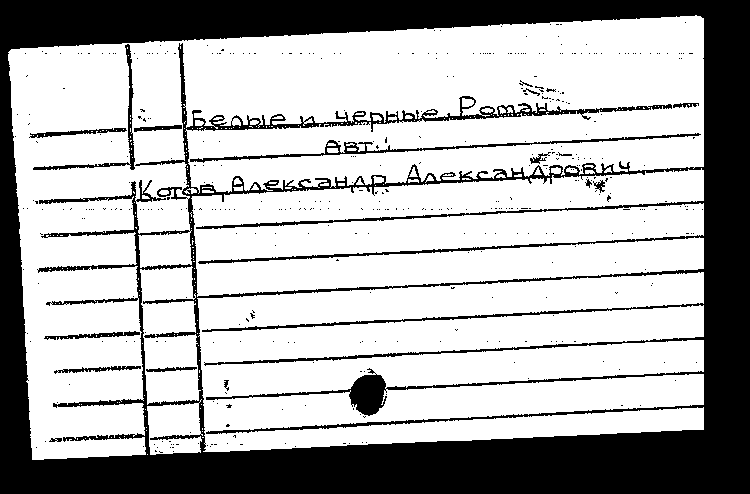 Белые и черные. Роман.
Авт.:
Котов, Александр Александрович.